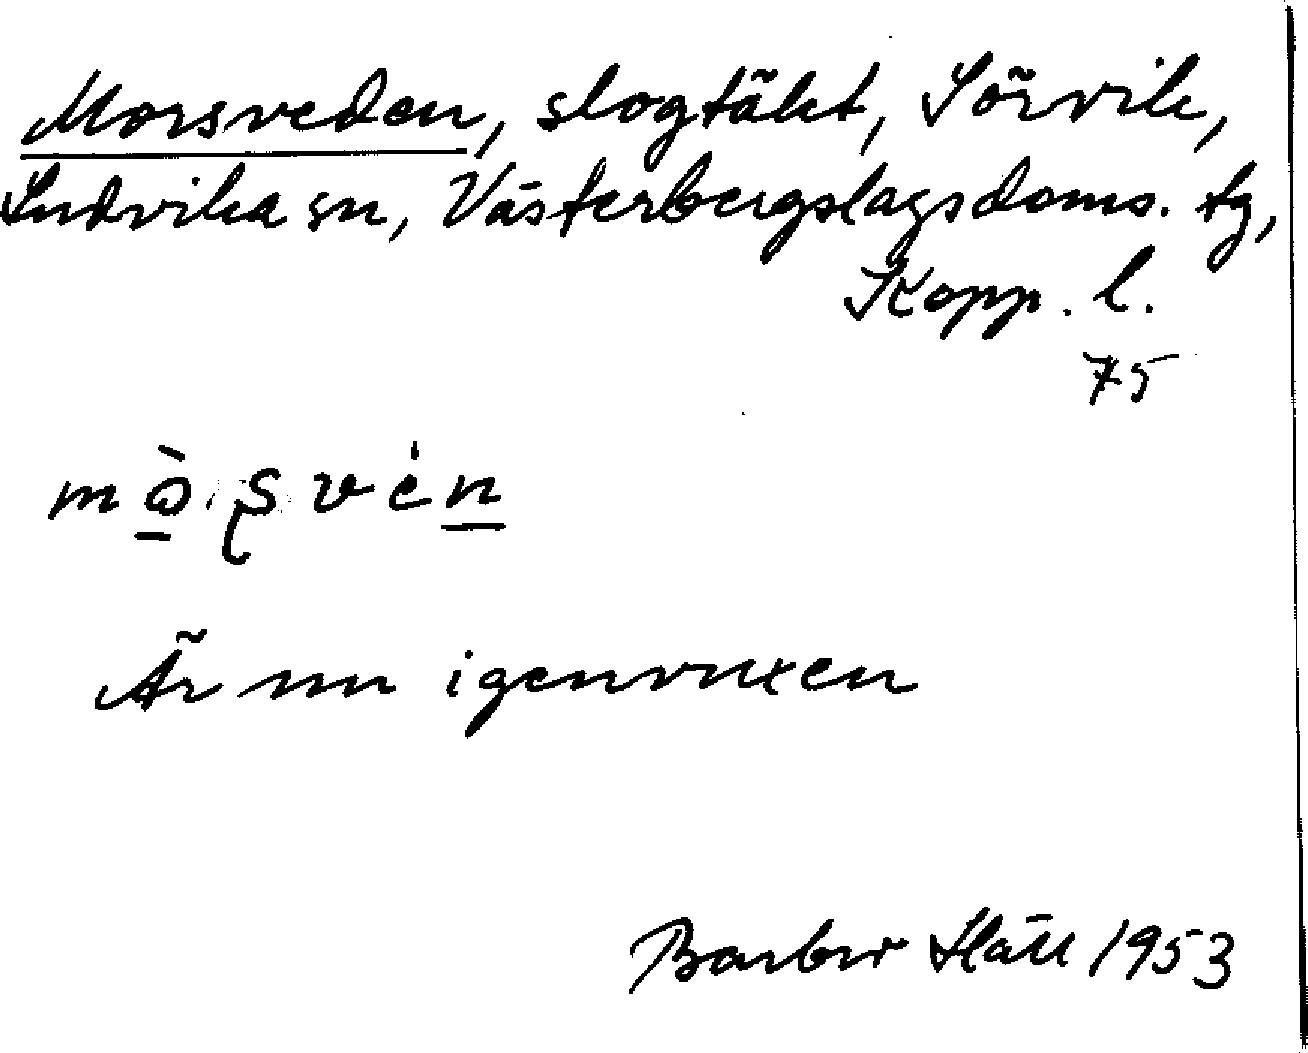 Morsveden, slogtäkt, Sörvik,
Ludvika sn, Västerbergslagsdoms. tg,
Kopp. l.
75
Är nu igenvuxen
1953